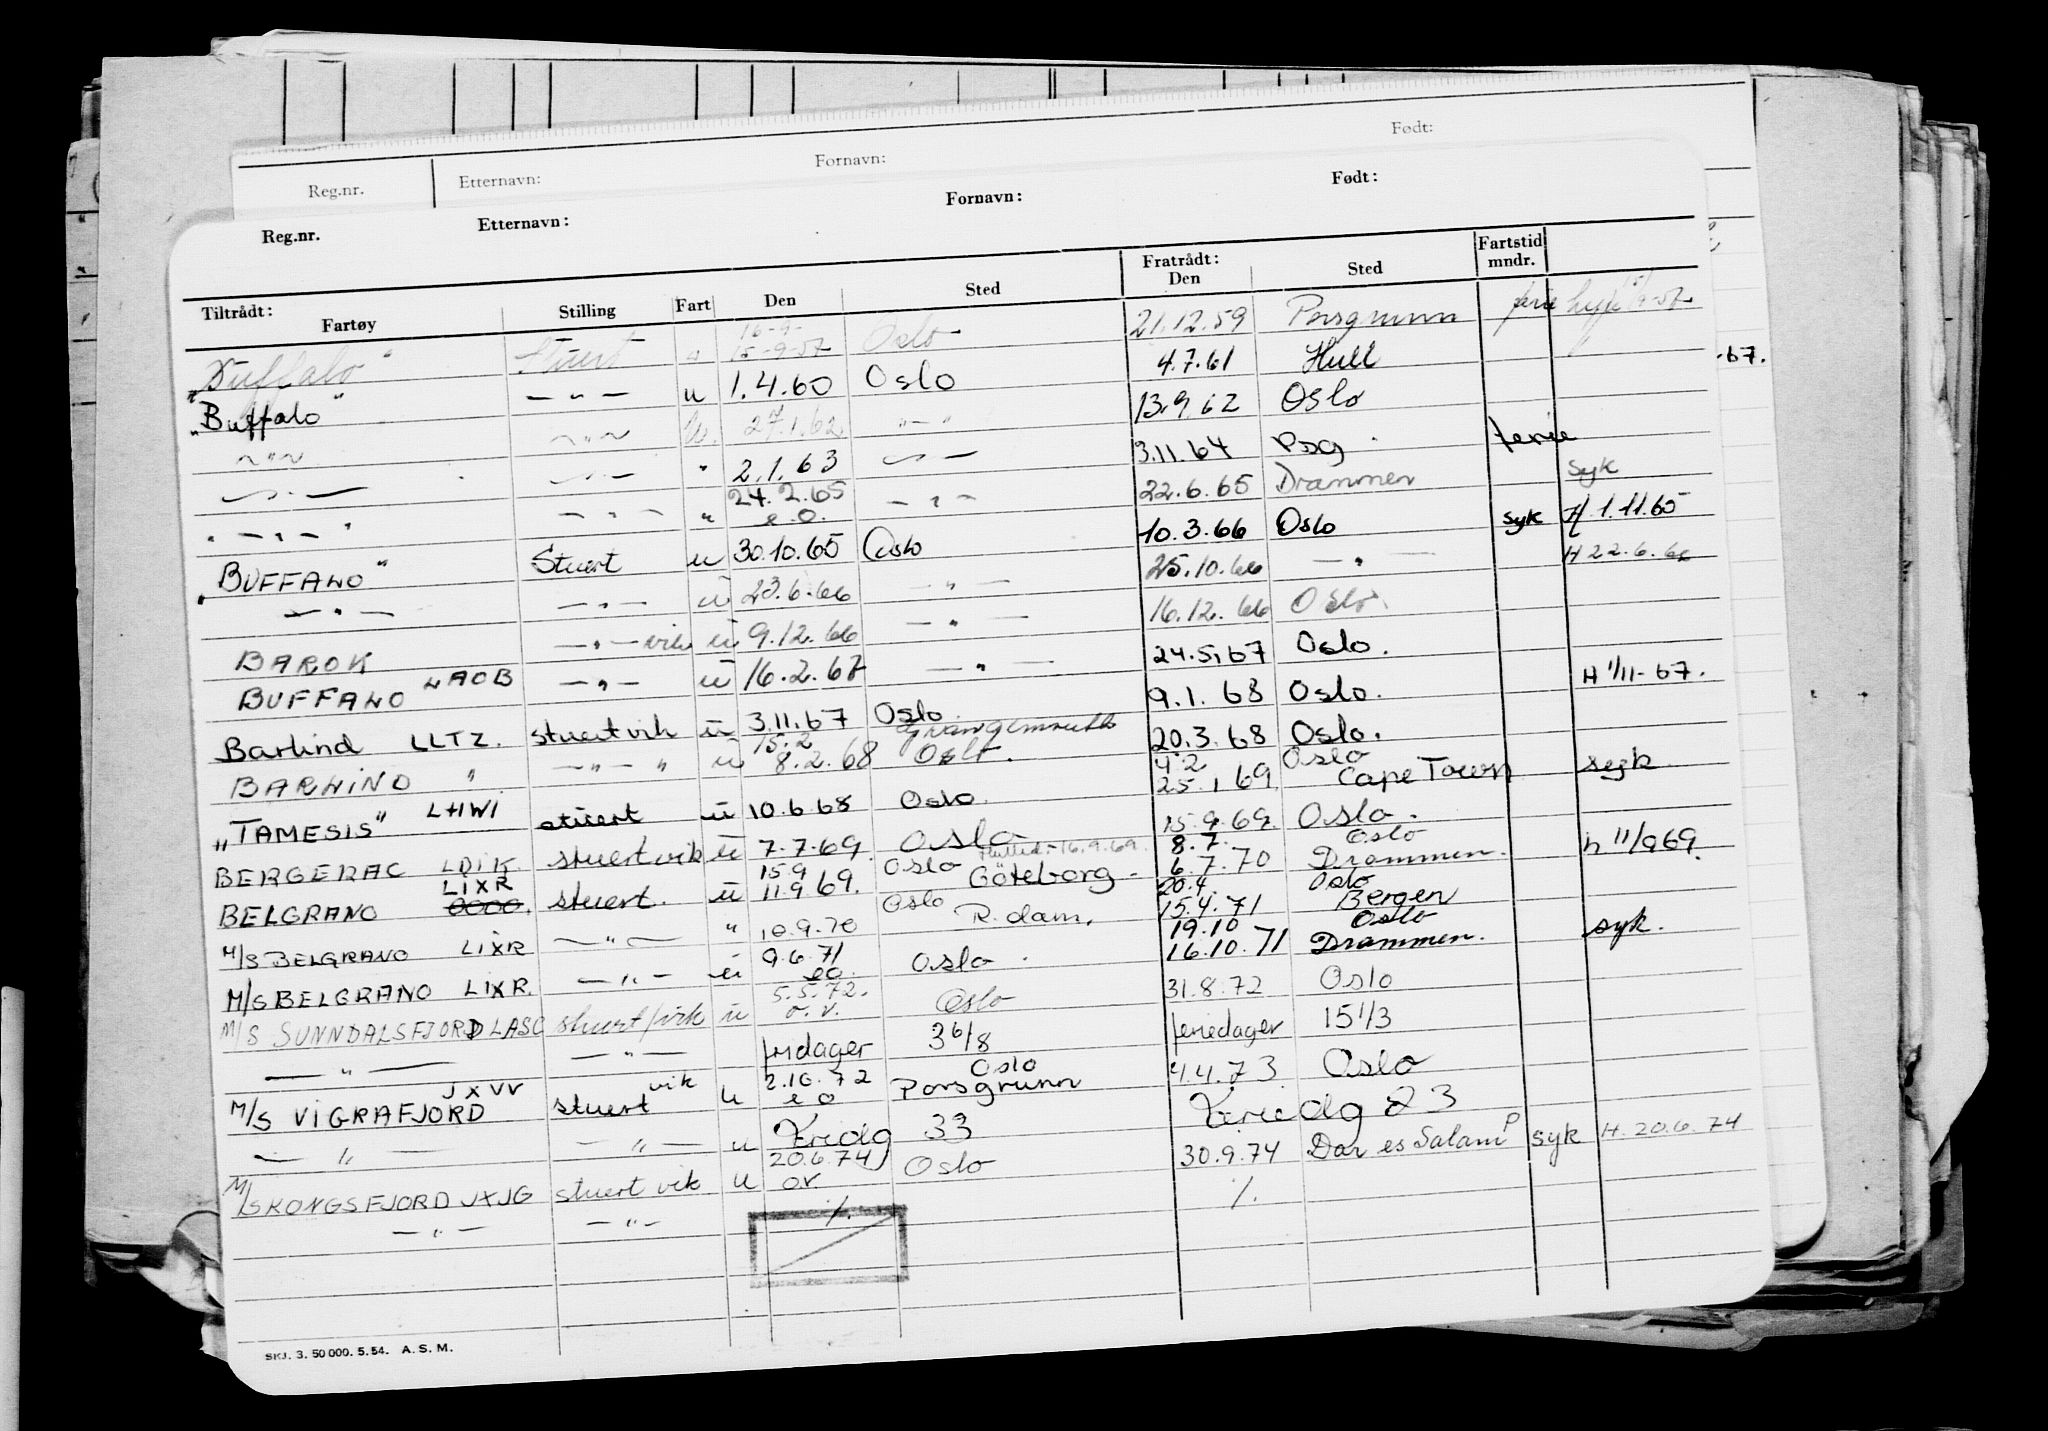 Født:
Reg.nr. Etternavn: Fornavn:
Født:
Reg.nr. Etternavn: Fornavn:
Tiltrådt: Fartøy Stilling Fart Den Sted Fratrådt: Den Sted Fartstid mndr.
"Buffalo" Stuert u 16-9- 15-9-57 Oslo 21.12.59 Porsgrunn ferie
"Buffalo" — " — u 1.4.60 Oslo 4.7.61 Hull
-67.
~ " ~ ~ " ~ u. 27.1.62 " - " 13.9.62 Oslo
— " — — " — " 2.1.63 — " — 3.11.64 Psg. ferie
— " — — " — " 24.2.65 e.o. — " — 22.6.65 Drammen syk
"BUFFALO" Stuert u 30.10.65 Oslo 10.3.66 Oslo syk H 1.11.65
— " — — " — u 23.6.66 — " — 25.10.66 — " H 22.6.66
BAROK — " — vik u 9.12.66 — " — 16.12.66 Oslo.
BUFFALO LAOB — " — u 16.2.67 — " — 24.5.67 Oslo.
Barlind LLTZ. stuert vik u 3.11.67 Oslo. 9.1.68 Oslo. H 1/11-67.
BARLIND " — " — " u 15.2 8.2.68 Oslo. 20.3.68 Oslo.
"TAMESIS" LHWI stuert u 10.6.68 Oslo. 4.2 25.1.69 Oslo Cape Town syk
BERGERAC LDIK. stuert vik u 7.7.69. Oslo 15.9.69. Oslo.
BELGRANO LIXR 0000. stuert. u 15.9 11.9.69. Oslo 16.9.69. Göteborg - 8.7. 6.7.70 Oslo Drammen. h 11/9 69.
M/S BELGRANO LIXR — " — " 10.9.70 Oslo R.dam. 20.4. 15.4.71 Oslo Bergen
M/S BELGRANO LIXR. — " — u 9.6.71 eo. Oslo. 19.10 16.10.71 Oslo Drammen. syk.
M/S SUNNDALSFJORD LASC stuert/vik u 5.5.72. o.v. Oslo 31.8.72 Oslo
— " — — " — fridager 36/8 feriedager 15 1/3
M/S VIGRAFJORD JXVV stuert vik u 2.10.72 eo Oslo Porsgrunn 4.4.73 Oslo
— " — — " — u Fridg 33 Feriedg 23
M/S KONGSFJORD JXJG stuert vik u 20.6.74 ov Oslo 30.9.74 Dar es Salam P syk H. 20.6.74
— " — — " — ./. ./.
SKJ. 3. 50 000. 5.54. A.S.M.